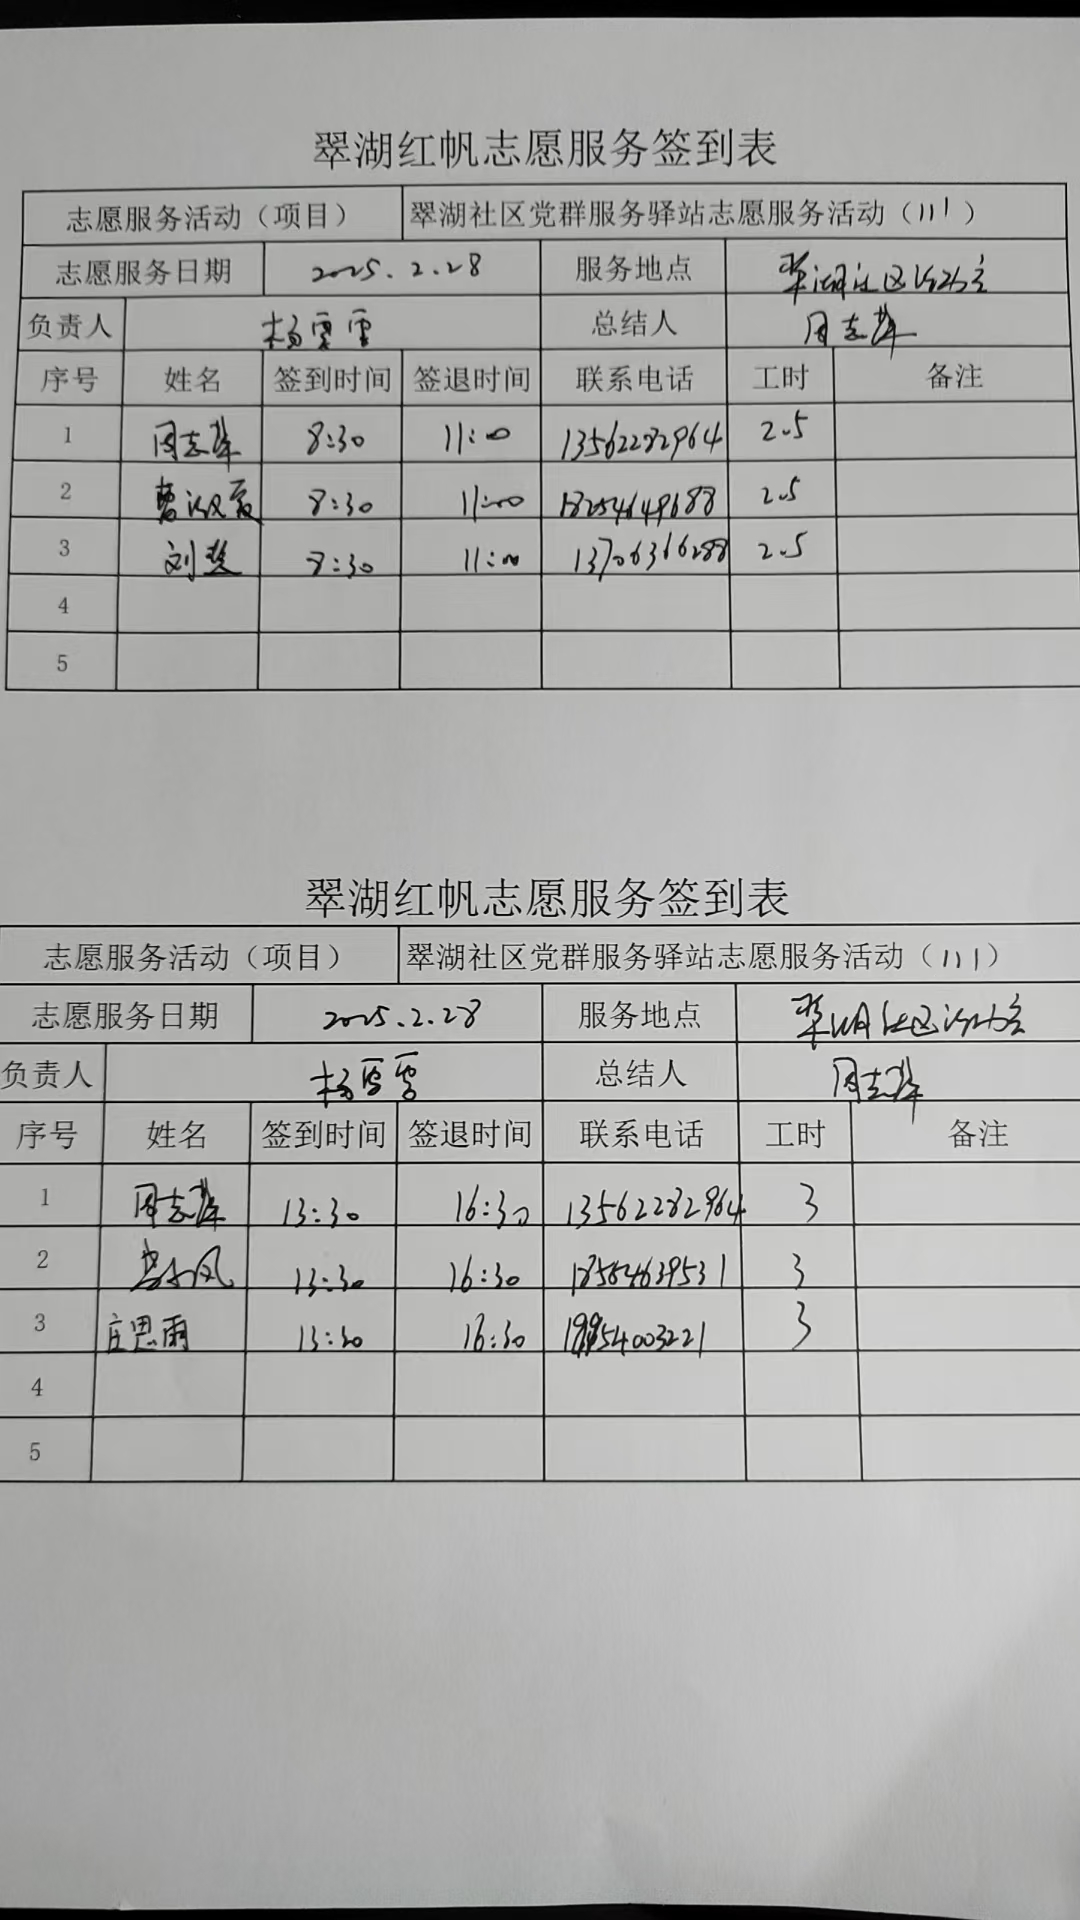 翠湖红帆志愿服务签到表
志愿服务活动（项目） 翠湖社区党群服务驿站志愿服务活动（111）
志愿服务日期 2025.2.28 服务地点 翠湖社区
负责人 杨雪雪 总结人 周志萍
序号 姓名 签到时间 签退时间 联系电话 工时 备注
1 周志萍 8:30 11:00 13562282964 2.5
2 8:30 11:00 18254649688 2.5
3 刘 8:30 11:00 13706366288 2.5
4
5
翠湖红帆志愿服务签到表
志愿服务活动（项目） 翠湖社区党群服务驿站志愿服务活动（111）
志愿服务日期 2025.2.28 服务地点 翠湖社区
负责人 杨雪雪 总结人 周志萍
序号 姓名 签到时间 签退时间 联系电话 工时 备注
1 周志萍 13:30 16:30 13562282964 3
2 13:30 16:30 18564639531 3
3 庄思雨 13:30 16:30 3
4
5